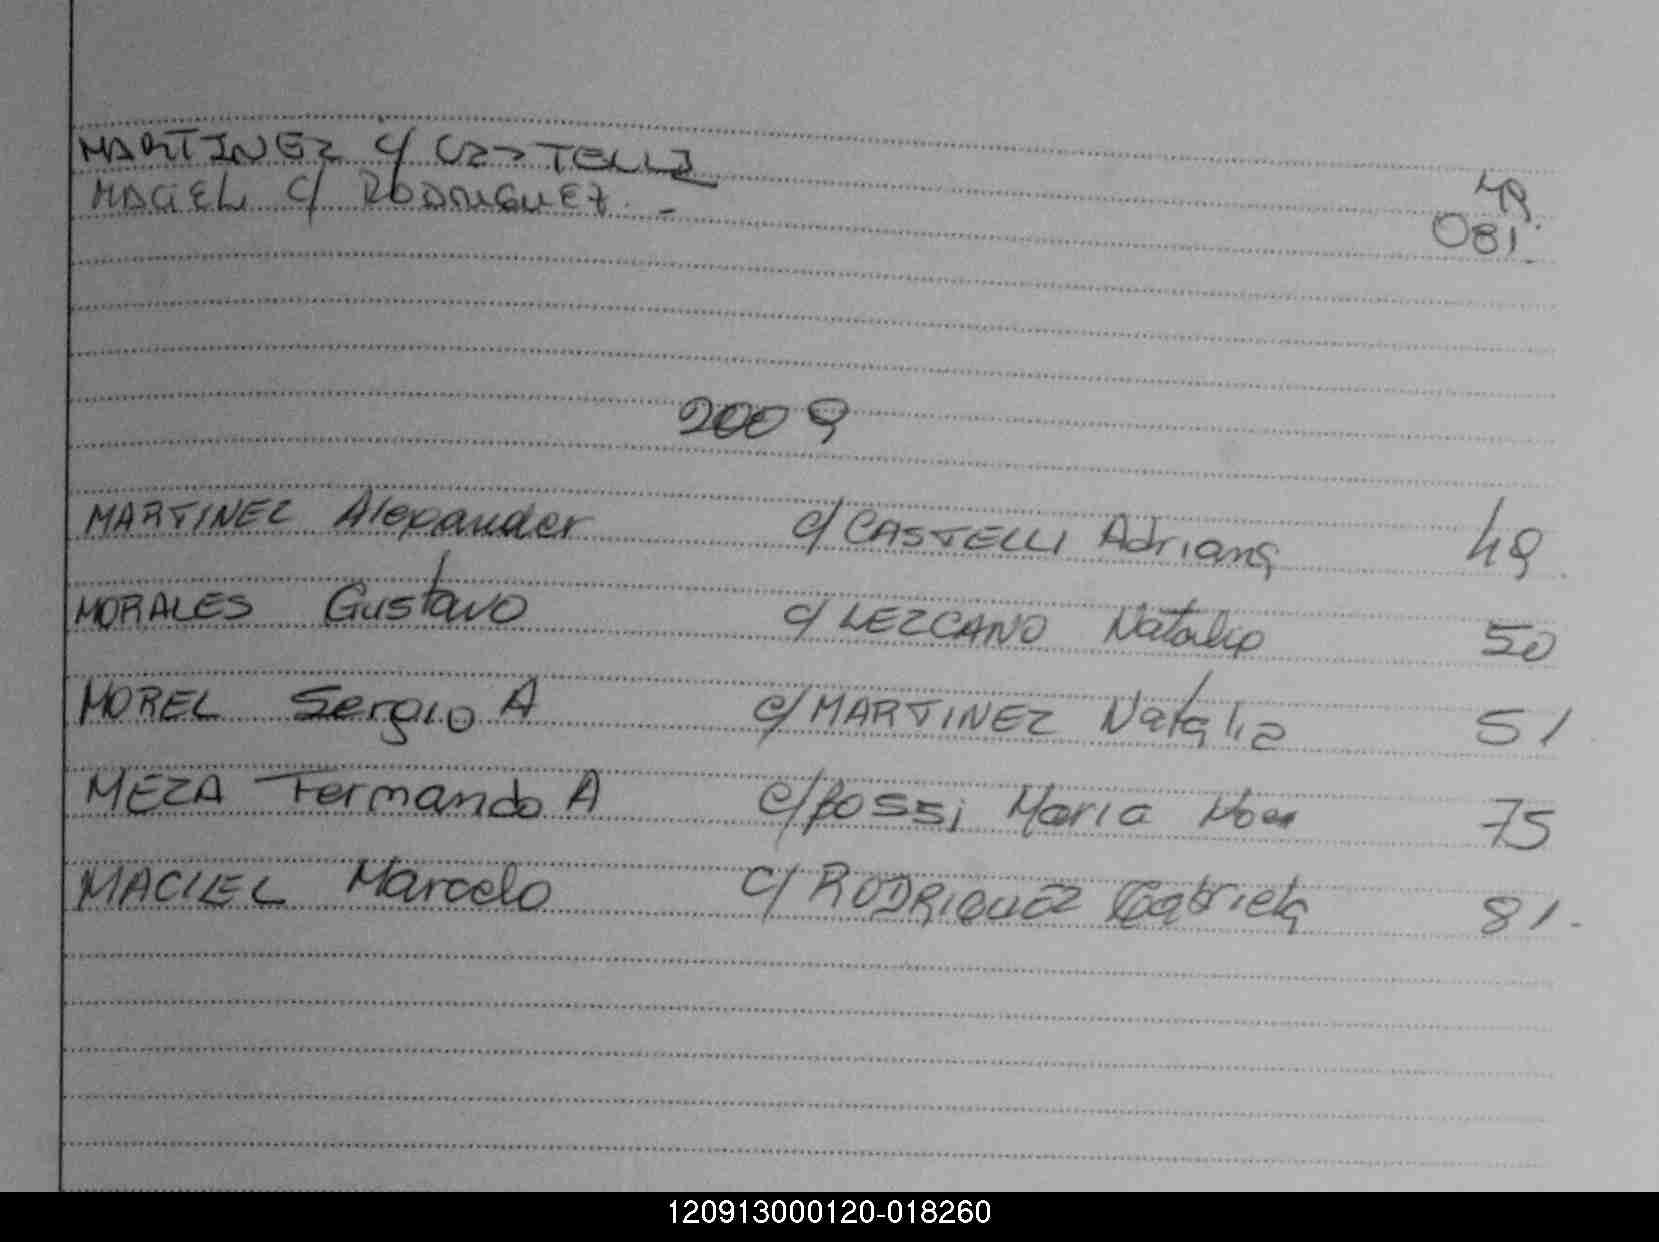 MARTINEZ c/ CASTELLI 49
MACIEL c/ RODRIGUEZ. - 081.
2009
MARTINEZ Alexander c/ CASTELLI Adriana 49
MORALES Gustavo c/ LEZCANO Natalia 50
MOREL Sergio A c/ MARTINEZ Natalia 51
MEZA Fernando A c/ Rossi Maria 75
MACIEL Marcelo c/ RODRIGUEZ Gabriela 81.
120913000120-018260